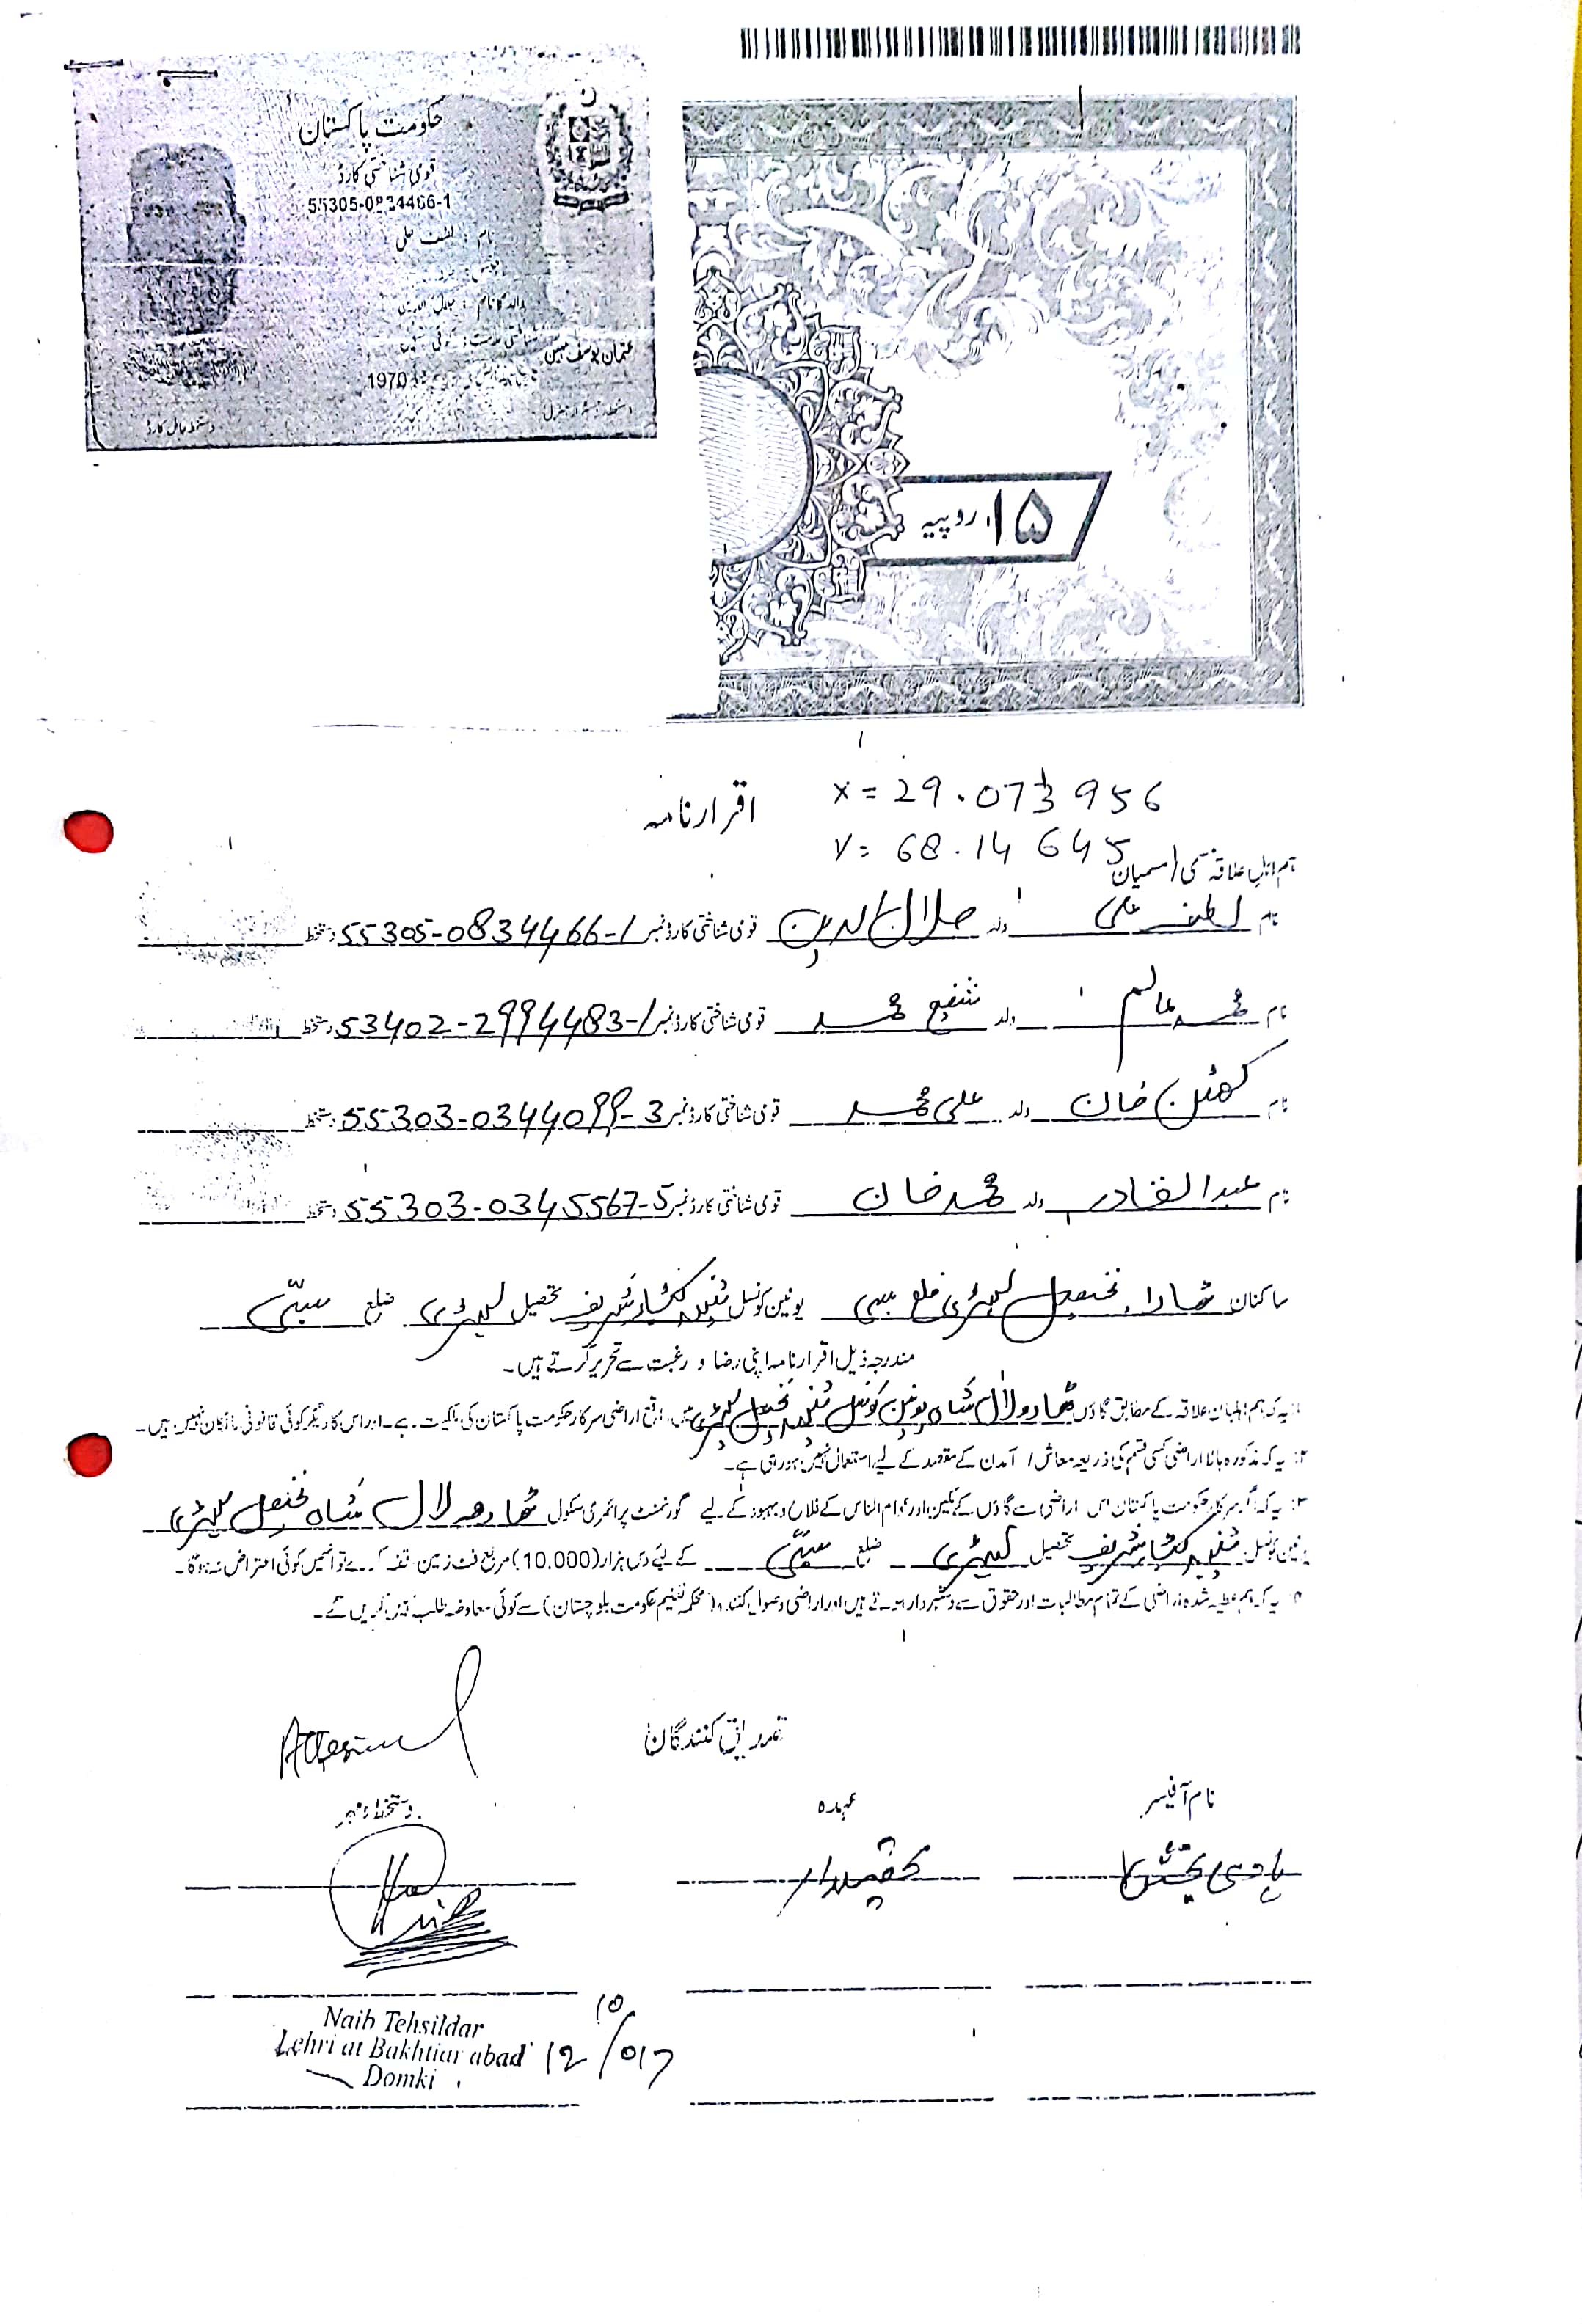 حکومت پاکستان
قومی شناختی کارڈ
55305-0834466-1
نام : لطف علی
والد کا نام : جلال الدین
عثمان یوسف مبین
1970
دستخط حامل کارڈ
۱۵ روپیہ
اقرار نامہ
x = 29.073956
y = 68.14645
ہم اہل علاقہ مسمی / مسمیان
نام لطف علی ولد جلال الدین قومی شناختی کارڈ نمبر 55305-0834466-1 دستخط
نام محمد عالم ولد شفیع محمد قومی شناختی کارڈ نمبر 53402-2994483-1 دستخط
نام کھٹن خان ولد علی محمد قومی شناختی کارڈ نمبر 55303-0344099-3 دستخط
نام عبدالقادر ولد محمد خان قومی شناختی کارڈ نمبر 55303-0345567-5 دستخط
ساکنان تحصیل لہڑی ضلع سبی یونین کونسل شریف تحصیل لہڑی ضلع سبّی
مندرجہ ذیل اقرار نامہ اپنی رضا و رغبت سے تحریر کرتے ہیں۔
۱: یہ کہ ہم اہلیان علاقہ کے مطابق گاؤں لال شاہ یونین کونسل تحصیل لہڑی میں واقع اراضی سرکار حکومت پاکستان کی ملکیت ہے۔ اور اس کا دیگر کوئی قانونی مالکان نہیں ہیں۔
۲: یہ کہ مذکورہ بالا اراضی کسی قسم کی ذریعہ معاش / آمدن کے مقصد کے لیے استعمال نہیں ہو رہی ہے۔
۳: یہ کہ اگر سرکار حکومت پاکستان اس اراضی سے گاؤں کے مکین اور عوام الناس کے فلاح و بہبود کے لیے گورنمنٹ پرائمری سکول لال شاہ تحصیل لہڑی
یونین کونسل شریف تحصیل لہڑی ضلع سبّی کے لیے دس ہزار (10.000) مربع فٹ زمین وقف کرے تو انہیں کوئی اعتراض نہ ہوگا۔
۴: یہ کہ ہم عطیہ شدہ اراضی کے تمام مطالبات اور حقوق سے دستبردار ہوتے ہیں اور اراضی وصول کنندہ (محکمہ تعلیم حکومت بلوچستان) سے کوئی معاوضہ طلب نہیں کریں گے۔
Attested
تصدیق کنندگان
نام آفیسر عہدہ دستخط و مہر
ہادی بخش تحصیلدار
Naib Tehsildar
Lehri at Bakhtiar abad
Domki
12/10/017